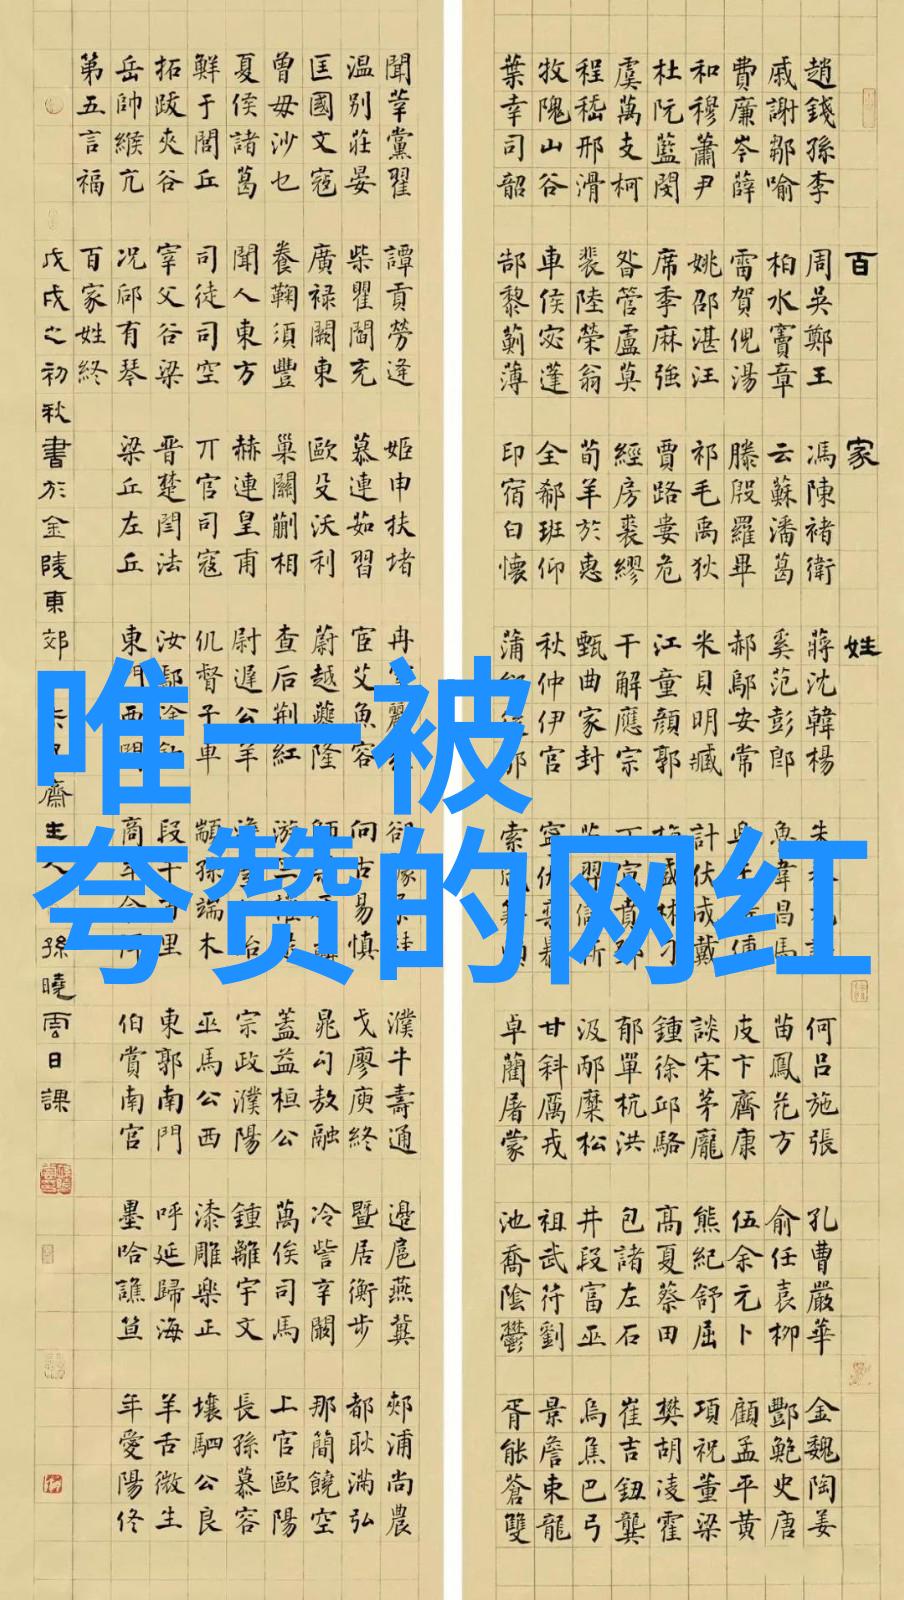 百家姓
趙錢孫李 周吳鄭王 馮陳褚衛 蔣沈韓楊 朱 何呂施張 孔曹嚴華 金魏陶姜
戚謝鄒喻 柏水竇章 云蘇潘葛 奚范彭郎 魯韋昌馬 苗鳳花方 俞任袁柳 酆鮑史唐
費廉岑薛 雷賀倪湯 滕殷羅畢 郝鄔安常 傅 皮卞齊康 伍余元卜 顧孟平黃
和穆蕭尹 姚邵湛汪 祁毛禹狄 米貝明臧 計伏成戴 談宋茅龐 熊紀舒屈 項祝董梁
杜阮藍閔 席季麻強 賈路婁危 江童顏郭 盛林刁 鍾徐邱駱 高夏蔡田 樊胡凌霍
虞萬支柯 昝管盧莫 經房裘繆 干解應宗 宣賁 郁單杭洪 包諸左石 崔吉鈕龔
程嵇邢滑 裴陸榮翁 荀羊於惠 甄曲家封 羿儲 汲邴糜松 井段富巫 烏焦巴弓
牧隗山谷 車侯宓蓬 全郗班仰 秋仲伊宮 甘鈄厲戎 祖武符劉 景詹束龍
葉幸司韶 郜黎薊薄 印宿白懷 蒲 索 卓藺屠蒙 池喬陰鬱 胥能蒼雙
聞莘黨翟 譚貢勞逄 姬申扶堵 冉 濮牛壽通 邊扈燕冀 郟浦尚農
温別莊晏 柴瞿閻充 慕連茹習 宦艾魚容 向古易慎 戈廖庾終 暨居衡步 都耿滿弘
匡國文寇 廣禄闕東 歐殳沃利 蔚越夔隆 晁勾敖融 冷訾辛闞 那簡饒空
曾毋沙乜 養鞠須豐 巢關蒯相 查后荆紅 游 蓋益桓公 萬俟司馬 上官歐陽
夏侯諸葛 聞人東方 赫連皇甫 尉遲公羊 宗政濮陽 鍾離宇文 長孫慕容
鮮于閭丘 司徒司空 丌官司寇 仉督子車 顓孫端木 巫馬公西 漆雕樂正 壤駟公良
拓跋夾谷 宰父谷梁 晉楚閆法 汝鄢 段干百里 東郭南門 呼延歸海 羊舌微生
岳帥緱亢 況郈有琴 梁丘左丘 東門西門 商 伯賞南宮 墨哈譙笪 年愛陽佟
第五言福 百家姓終
戊戌之初秋書於金陵東郊 齋主人孫曉雲日課
唯一被
夸赞的网红